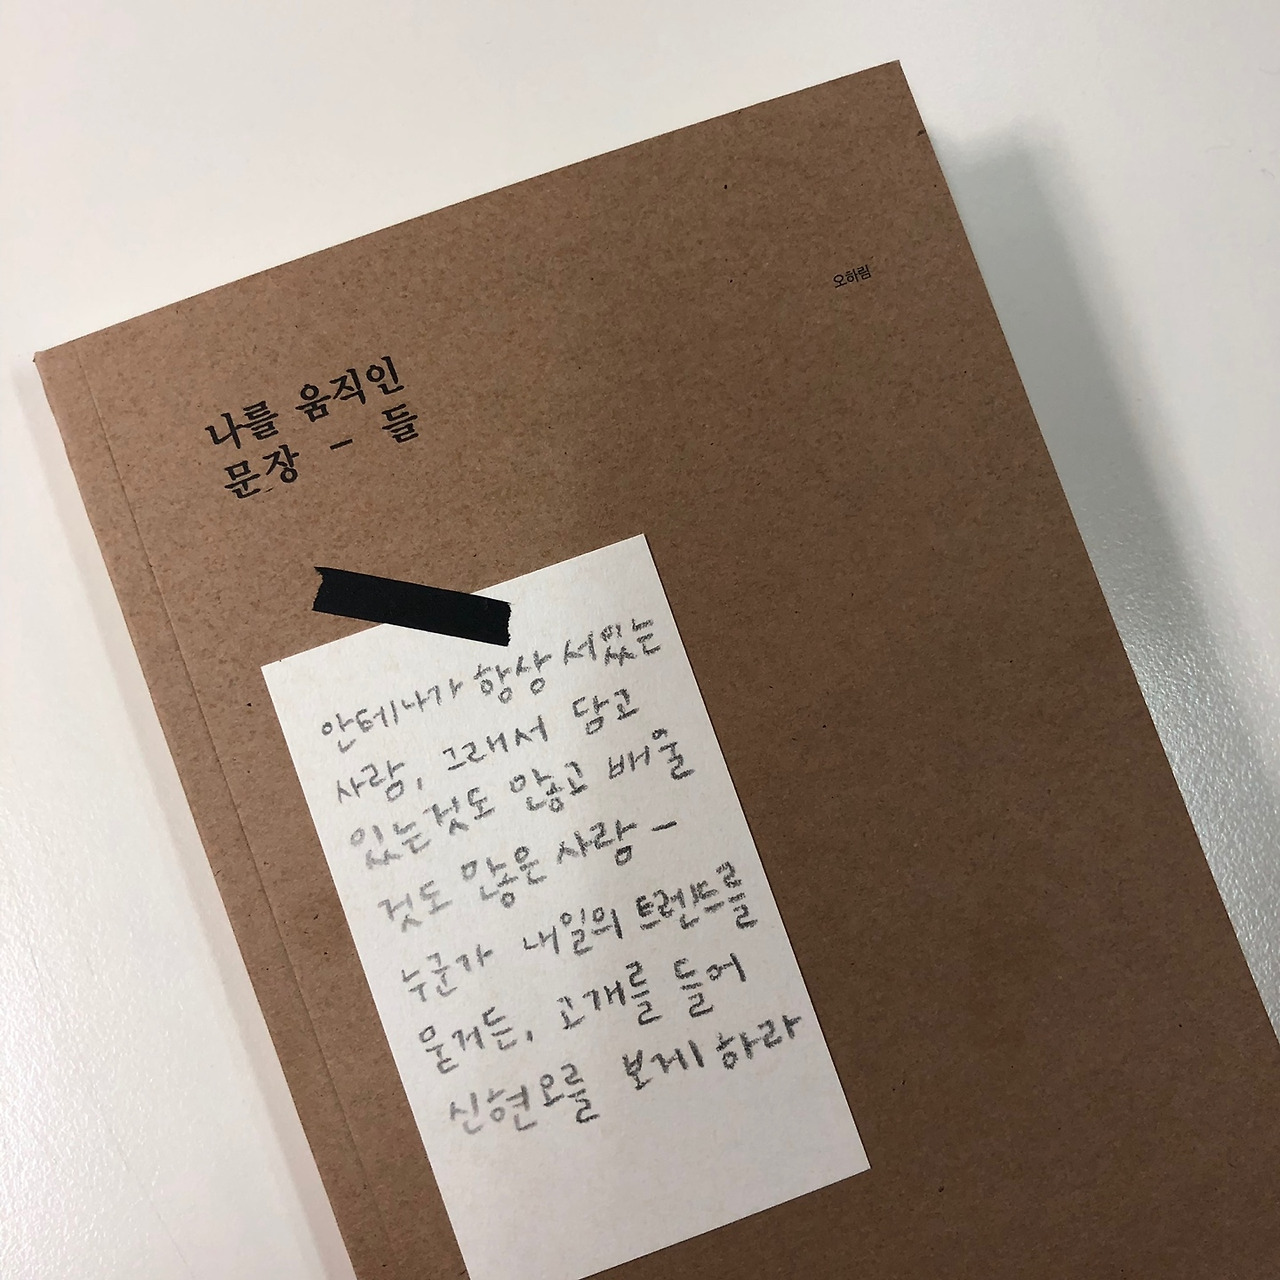 오하림
나를 움직인
문장 - 들
안테나가 항상 서있는
사람, 그래서 담고
있는것도 많고 배울
것도 많은 사람 -
누군가 내일의 트렌드를
묻거든, 고개를 들어
신현오를 보게 하라